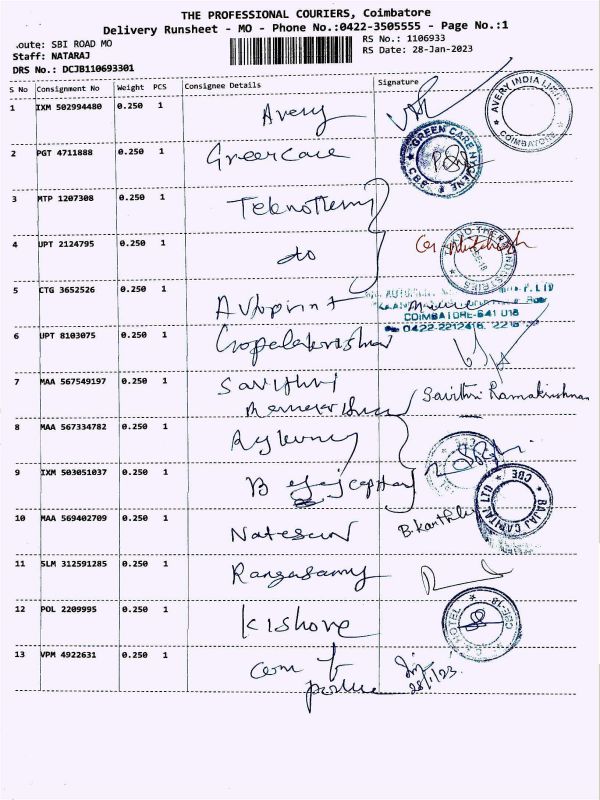 THE PROFESSIONAL COURIERS, Coimbatore
Delivery Runsheet - MO - Phone No.:0422-3505555 - Page No.:1
oute: SBI ROAD MO
RS No.: 1106933
Staff: NATARAJ
RS Date: 28-Jan-2023
DRS No.: DCJB110693301
S No Consignment No Weight PCS Consignee Details Signature
1 IXM 502994480 0.250 1 Avery
AVERY INDIA LIMI
COIMBATORE
2 PGT 4711888 0.250 1 Greencare
GREEN CARE HYGIENE
CBE
3 MTP 1207308 0.250 1
4 UPT 2124795 0.250 1 do
5 CTG 3652526 0.250 1 Autoprint
COIMBATORE-641 018
6 UPT 8103075 0.250 1 Gopalakrishnan
7 MAA 567549197 0.250 1 Savithri
Savithri Ramakrishnan
8 MAA 567334782 0.250 1
9 IXM 503051037 0.250 1 B
BAJAJ CAPITAL LTD
CBE
10 MAA 569402709 0.250 1 Natesan
11 SLM 312591285 0.250 1 Rangasamy
12 POL 2209995 0.250 1 Kishore
HOTEL
CBE-18
13 VPM 4922631 0.250 1
28/1/23